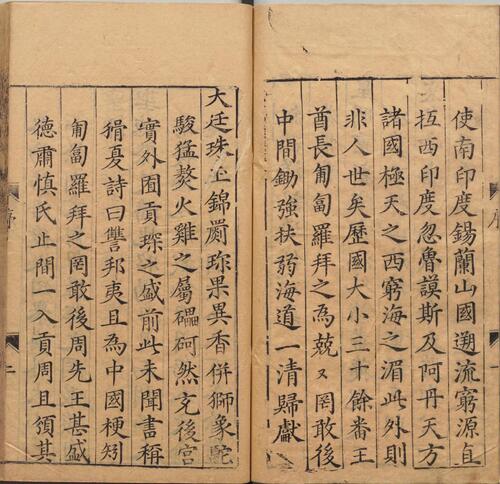 使南印度錫蘭山國遡流窮源直
抵西印度忽魯謨斯及阿丹天方
諸國極天之西窮海之湄此外則
非人世矣歷國大小三十餘番王
酋長匍匐羅拜之為兢又罔敢後
中間鋤強扶弱海道一清歸獻
大廷珠玉錦罽珎果異香併獅象駝
駿猛獒火雞之屬礧砢然充後宮
實外囿貢琛之盛前此未聞書稱
猾夏詩曰讐邦夷且為中國梗矧
匍匐羅拜之罔敢後周先王甚盛
德肅慎氏止間一入貢周且頌其
序
一
序
二